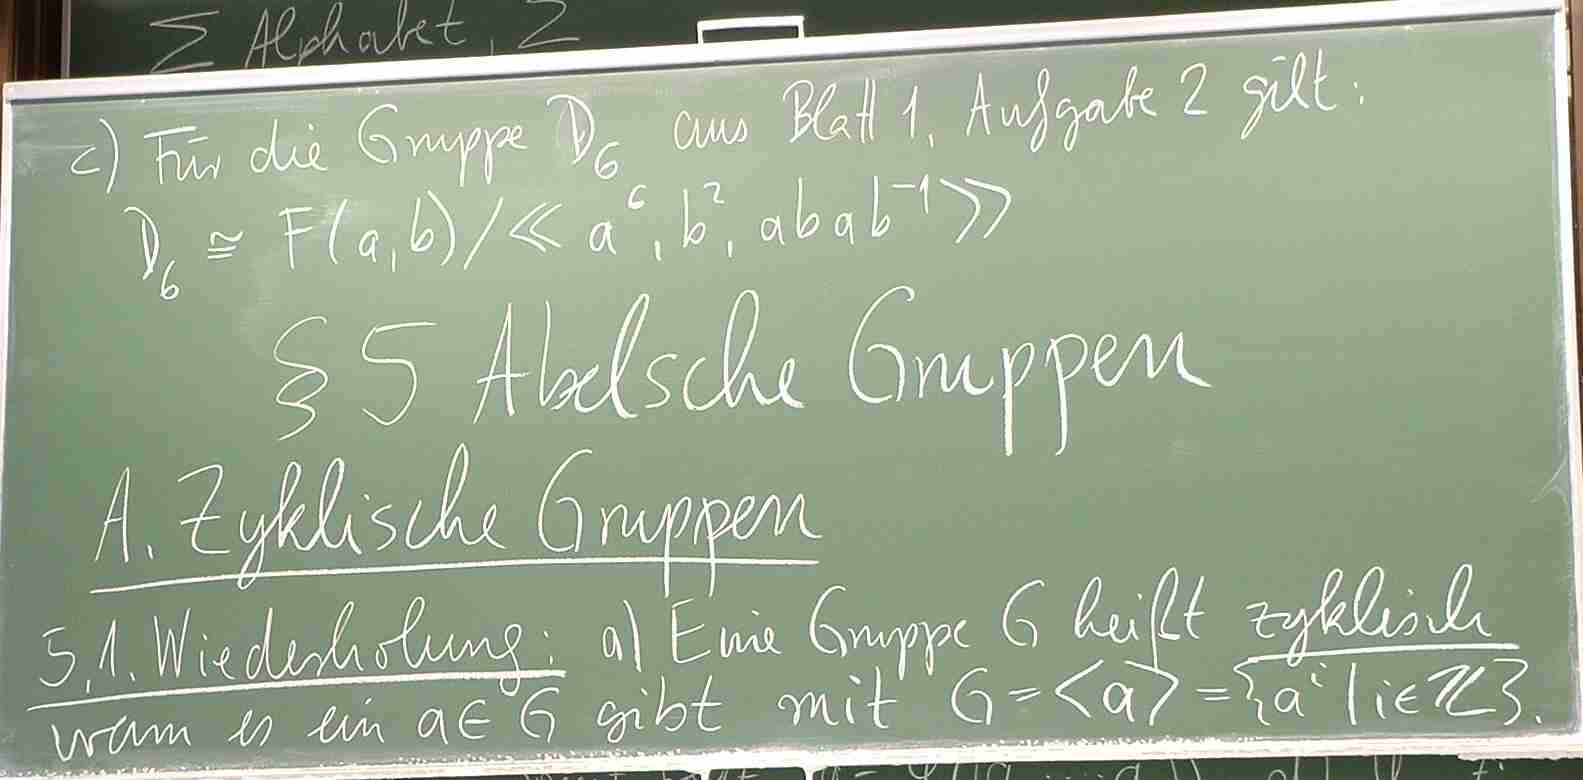 Σ Alphabet, Σ
c) Für die Gruppe D₆ aus Blatt 1, Aufgabe 2 gilt:
D₆ ≅ F(a,b)/≪ a⁶, b², abab⁻¹≫
§ 5 Abelsche Gruppen
A. Zyklische Gruppen
5.1. Wiederholung: a) Eine Gruppe G heißt zyklisch
wenn es ein a∈G gibt mit G=<a>={aⁱ | i∈ℤ}.